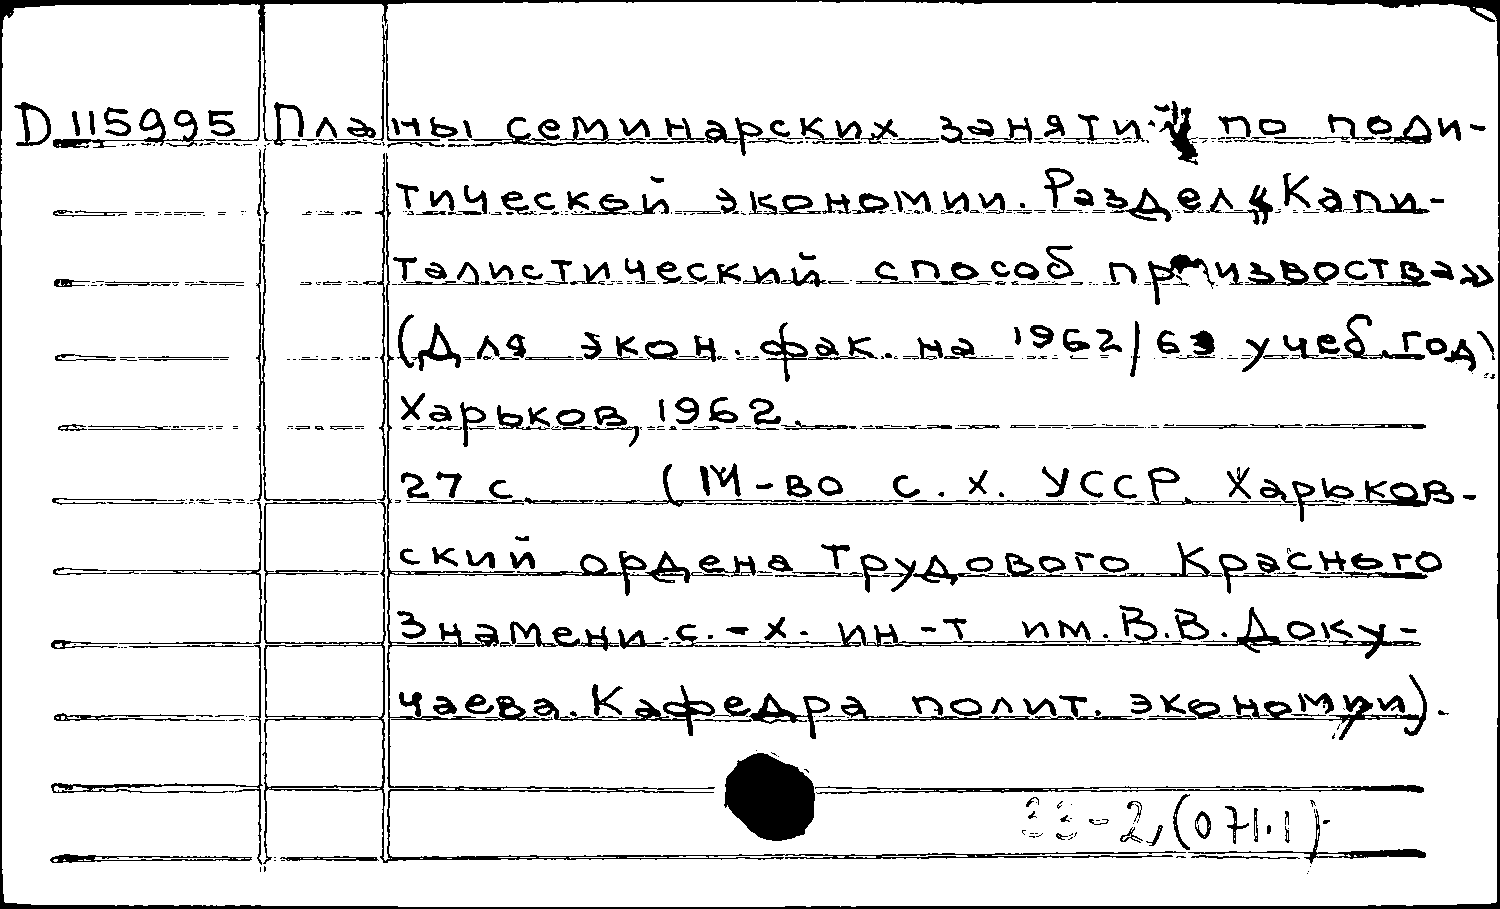 D 115995 Планы семинарских занятий по поли-
тической экономии. Раздел „Капи-
талистический способ произвоства»
(Для экон. фак. на 1962/63 учеб. год)
Харьков, 1962.
27 с. (М-во с. х. УССР. Харьков-
ский ордена Трудового Красного
Знамени с.-х. ин-т им. В.В. Доку-
чаева. Кафедра полит. экономии).
33-2,(071.1)